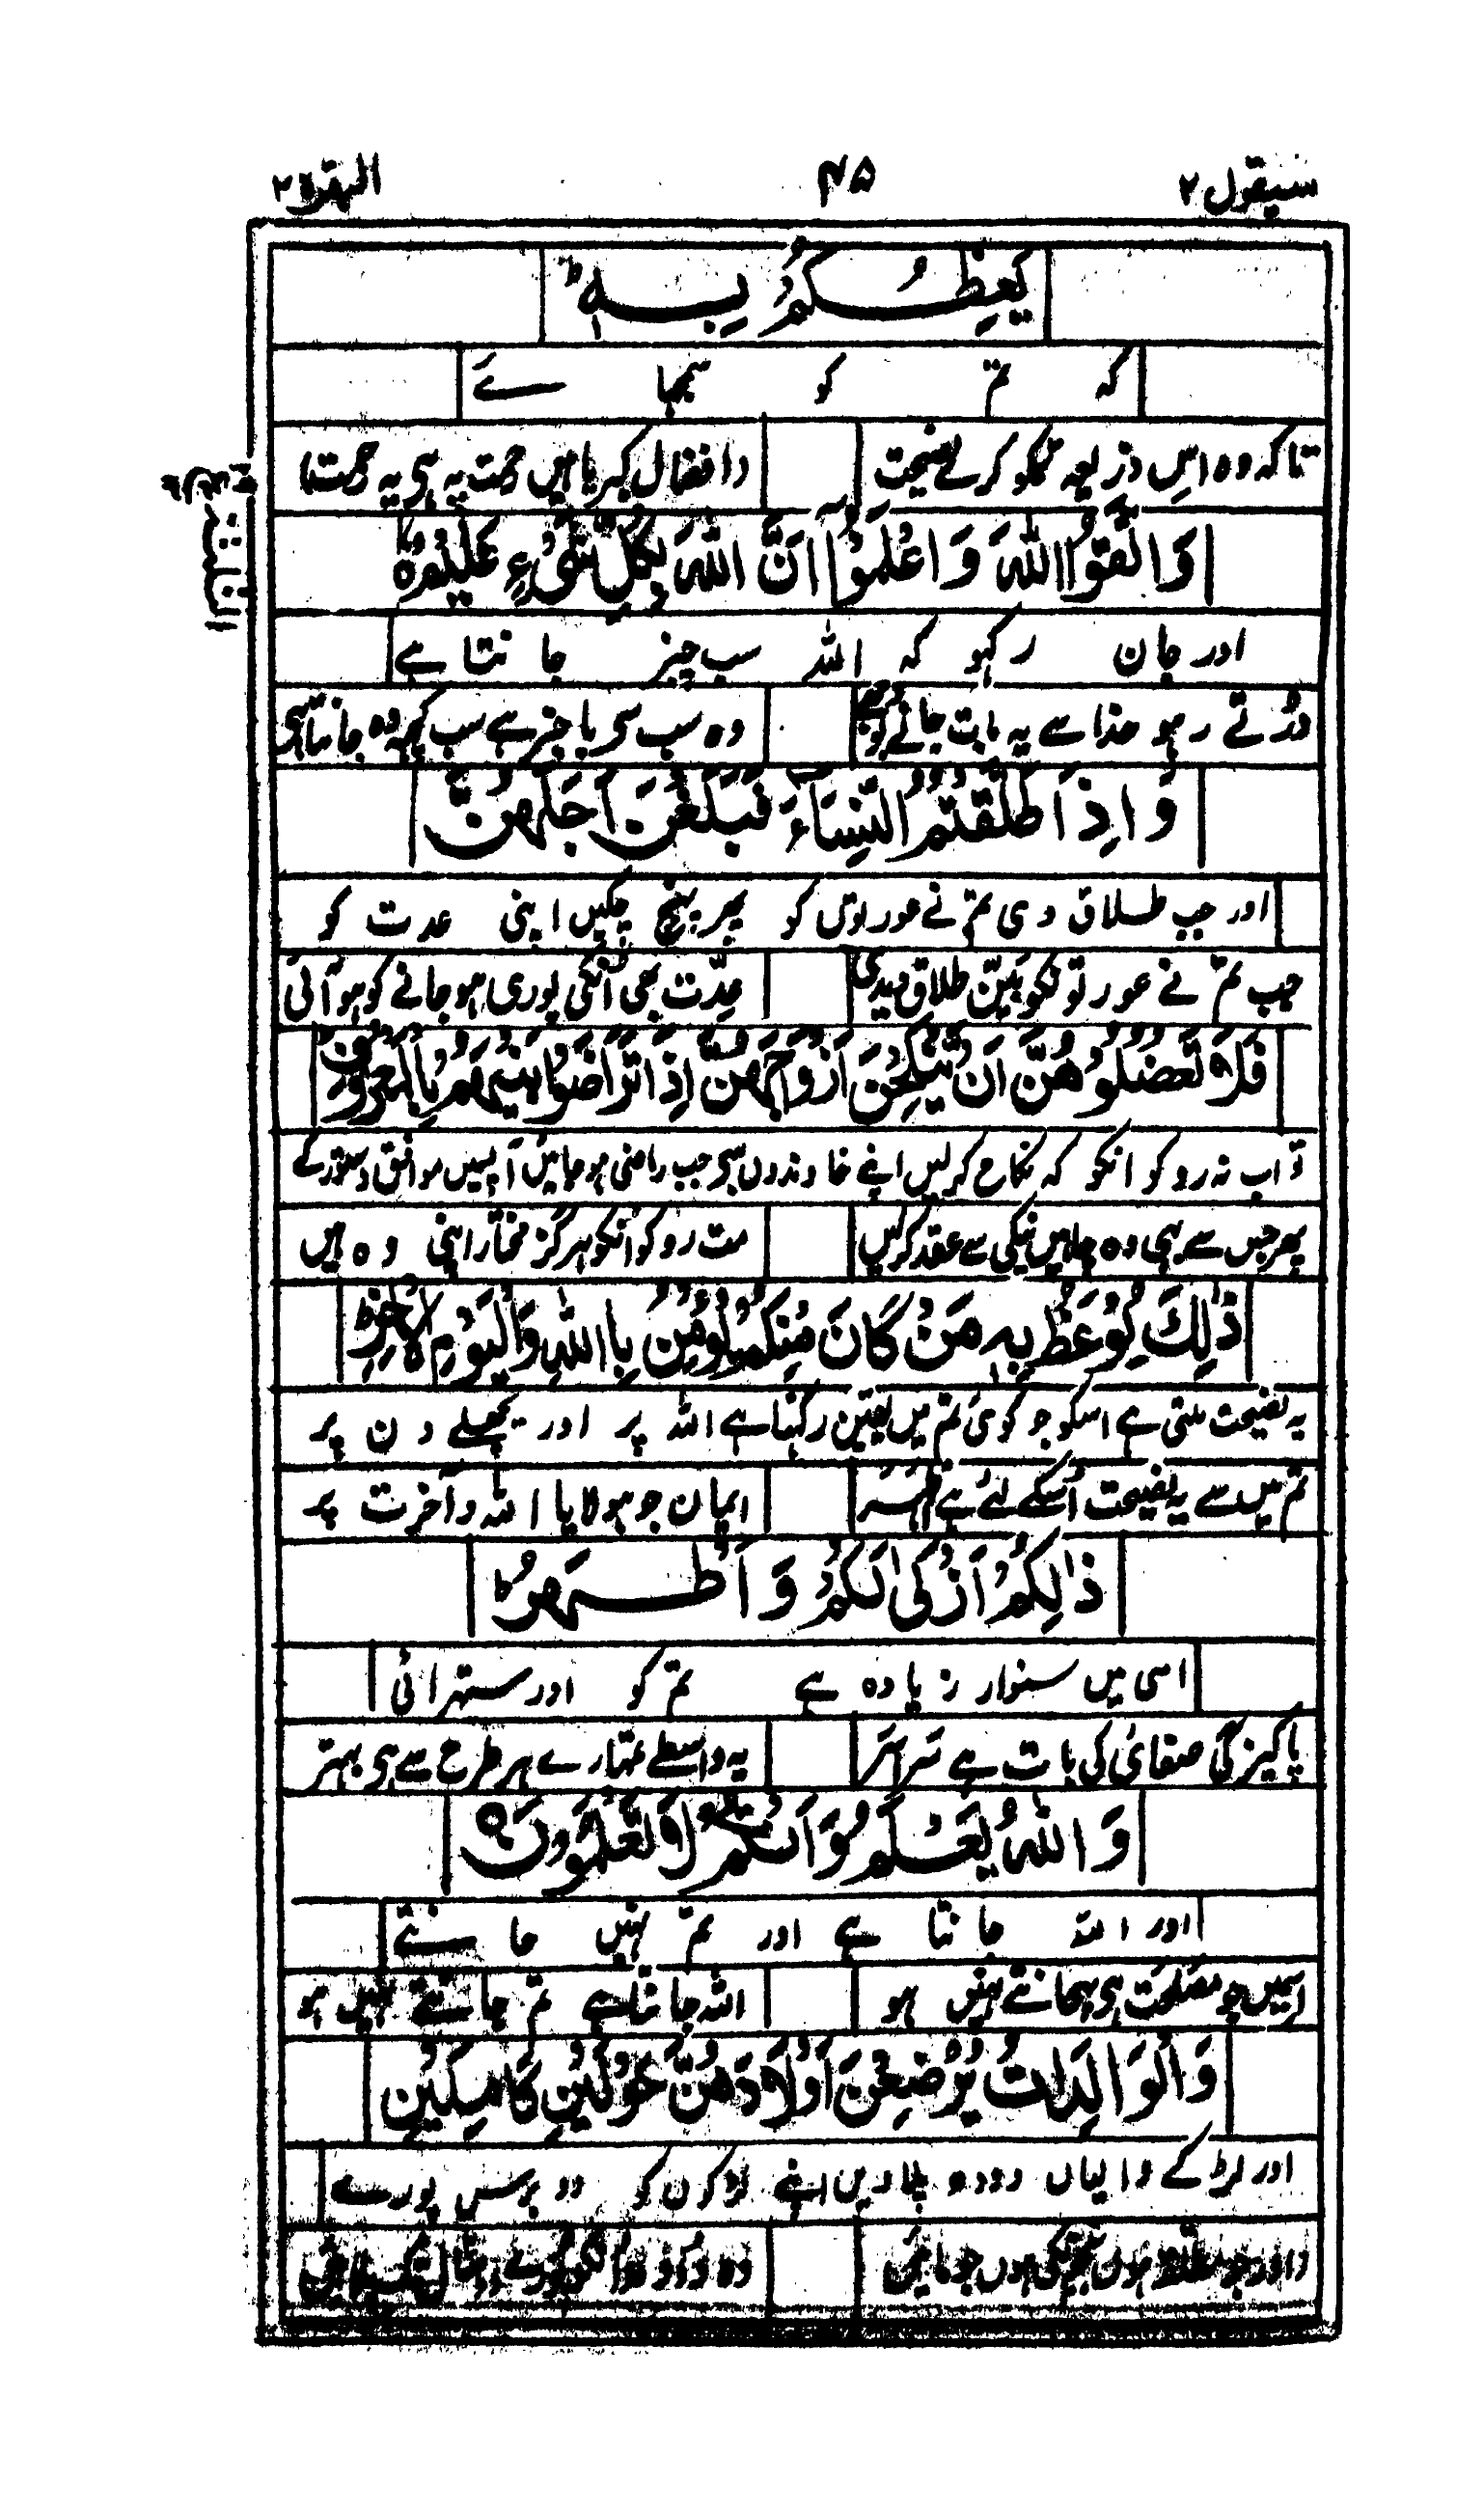 سیقول ۲ ۴۵ البقرۃ ۲
يَعِظُكُمْ بِهٖ
کہ تم کو سمجھا سے
تاکہ وہ اس ذریعہ تمکو کرے نصیحت
وَاتَّقُوا اللّٰهَ وَاعْلَمُوْۤا اَنَّ اللّٰهَ بِكُلِّ شَیْءٍ عَلِیْمٌ
اور جان رکھو کہ اللہ سب چیز جانتا ہے
ڈرتے رہو خدا سے یہ بات جانے وہ سب سی باخبر ہے سب کچھ وہ جانتا ہی
وَاِذَا طَلَّقْتُمُ النِّسَآءَ فَبَلَغْنَ اَجَلَهُنَّ
اور جب طلاق دی تم نے عورتوں کو پھر پہنچ چکیں اپنی عدت کو
جب تم نے عورتونکو طلاق دیدی عدّت بھی انکی پوری ہو جانے کو ہو آئی
فَلَا تَعْضُلُوْهُنَّ اَنْ یَّنْكِحْنَ اَزْوَاجَهُنَّ اِذَا تَرَاضَوْا بَیْنَهُمْ بِالْمَعْرُوْفِ
تو اب نہ روکو انکو کہ نکاح کر لیں اپنے خاوندوں سی جب راضی ہو جائیں آپسمیں موافق دستور کے
پھر جس سے بھی وہ چاہیں نیکی سے عقد کرلیں مت روکو انکو ہرگز مختار اپنی وہ ہیں
ذٰلِكَ یُوْعَظُ بِهٖ مَنْ كَانَ مِنْكُمْ یُؤْمِنُ بِاللّٰهِ وَالْیَوْمِ الْاٰخِرِ
یہ نصیحت ملتی ہے اسکو جو کوئی تم میں یقین رکھتا ہے اللہ پر اور پچھلے دن پر
تم میں سے یہ نصیحت اُسکے لئے ہے ایمان جو ہو لایا اللہ و آخرت پر
ذٰلِكُمْ اَزْكٰى لَكُمْ وَاَطْهَرُ
اسی میں سنوار زیادہ ہے تم کو اور ستھرائی
پاکیزگی صفائی کی بات ہے سَراسَر یہ واسطے تمہارے ہر طرح سے ہی بہتر
وَاللّٰهُ یَعْلَمُ وَاَنْتُمْ لَا تَعْلَمُوْنَ
اور اللہ جانتا ہے اور تم نہیں جانتے
اسمیں جو مصلحت ہی اللہ جانتا ہے تم جانتے نہیں ہو
وَالْوَالِدٰتُ یُرْضِعْنَ اَوْلَادَهُنَّ حَوْلَیْنِ كَامِلَیْنِ
اور لڑکے والیاں دودھ پلادیں اپنے لڑکوں کو دو برس پورے